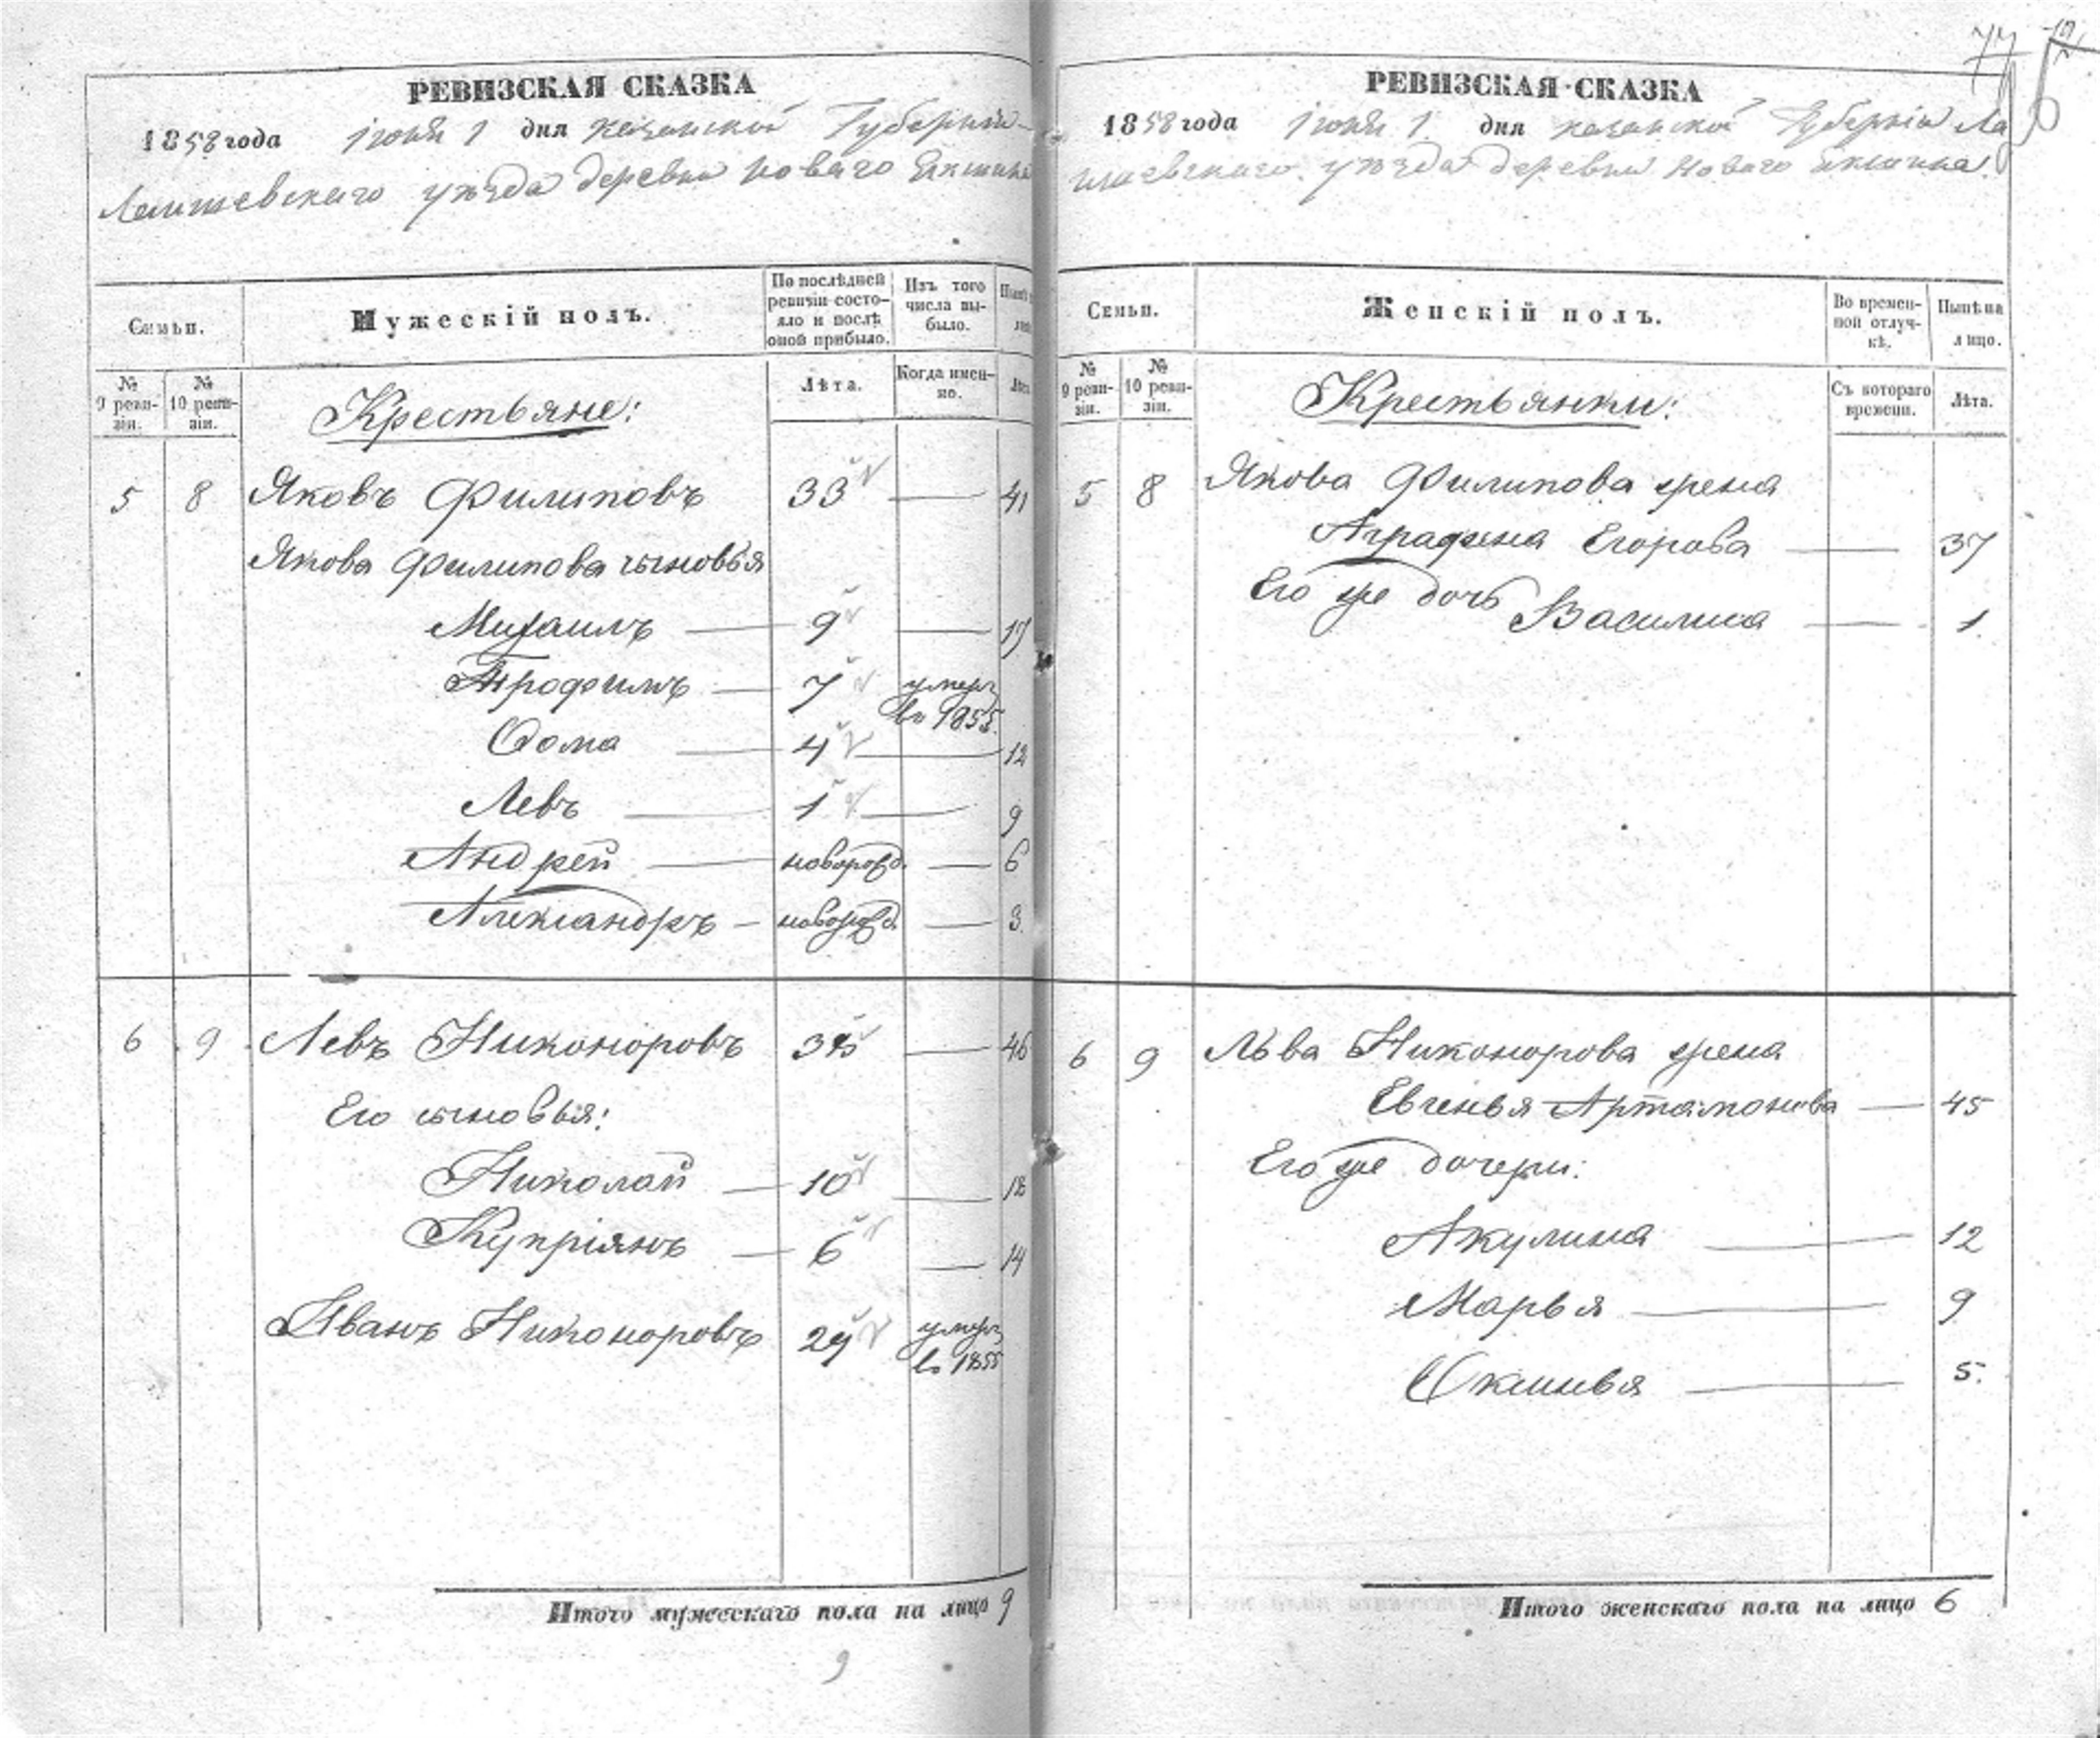 77
РЕВИЗСКАЯ СКАЗКА
1858 года Іюня 1 дня Казанской Губерніи
Лаишевскаго уѣзда деревни Новаго
Семьи.
Мужескій полъ.
По послѣдней ревизіи состояло и послѣ оной прибыло.
Изъ того числа выбыло.
№ 9 ревизіи.
№ 10 ревизіи.
Лѣта.
Когда именно.
Крестьяне:
5 8 Яковъ Филиповъ 33 — 41
Якова Филипова сыновья
Михаилъ — 9 — 17
Трофимъ — 7 умеръ
въ 1855.
Ѳома — 4 — 12
Левъ — 1 — 9
Андрей — новорожд. — 6
Александръ — новорожд. — 3.
6 9 Левъ Никоноровъ 38 — 46
Его сыновья:
Николай — 10 — 18
Купріянъ — 6 — 14
Иванъ Никоноровъ 29 умеръ
въ 1855
Итого мужескаго пола на лицо 9
9
РЕВИЗСКАЯ СКАЗКА
1858 года Іюня 1. дня Казанской Губерніи Ла
ишевскаго уѣзда деревни Новаго
Семьи.
Женскій полъ.
Во временной отлучкѣ.
Нынѣ на лицо.
№ 9 ревизіи.
№ 10 ревизіи.
Съ котораго времени.
Лѣта.
Крестьянки:
5 8 Якова Филипова жена
Аграфена Егорова — 37
Его же дочь Василиса — 1.
6 9 Льва Никонорова жена
Евгенья Артамонова — 45
Его же дочери:
Акулина — 12
Марья — 9
Оксинья — 5.
Итого женскаго пола на лицо 6